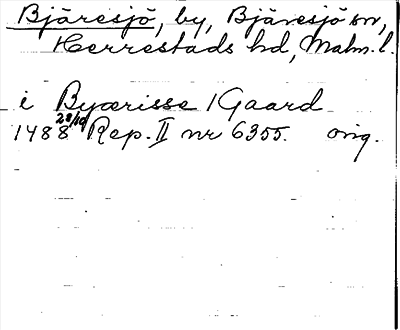 Bjäresjö, by, Bjäresjö sn,
Herrestads hd, Malm. l.
i Byærisse /Gaard
1488 28/10 Rep. II nr 6355. orig.